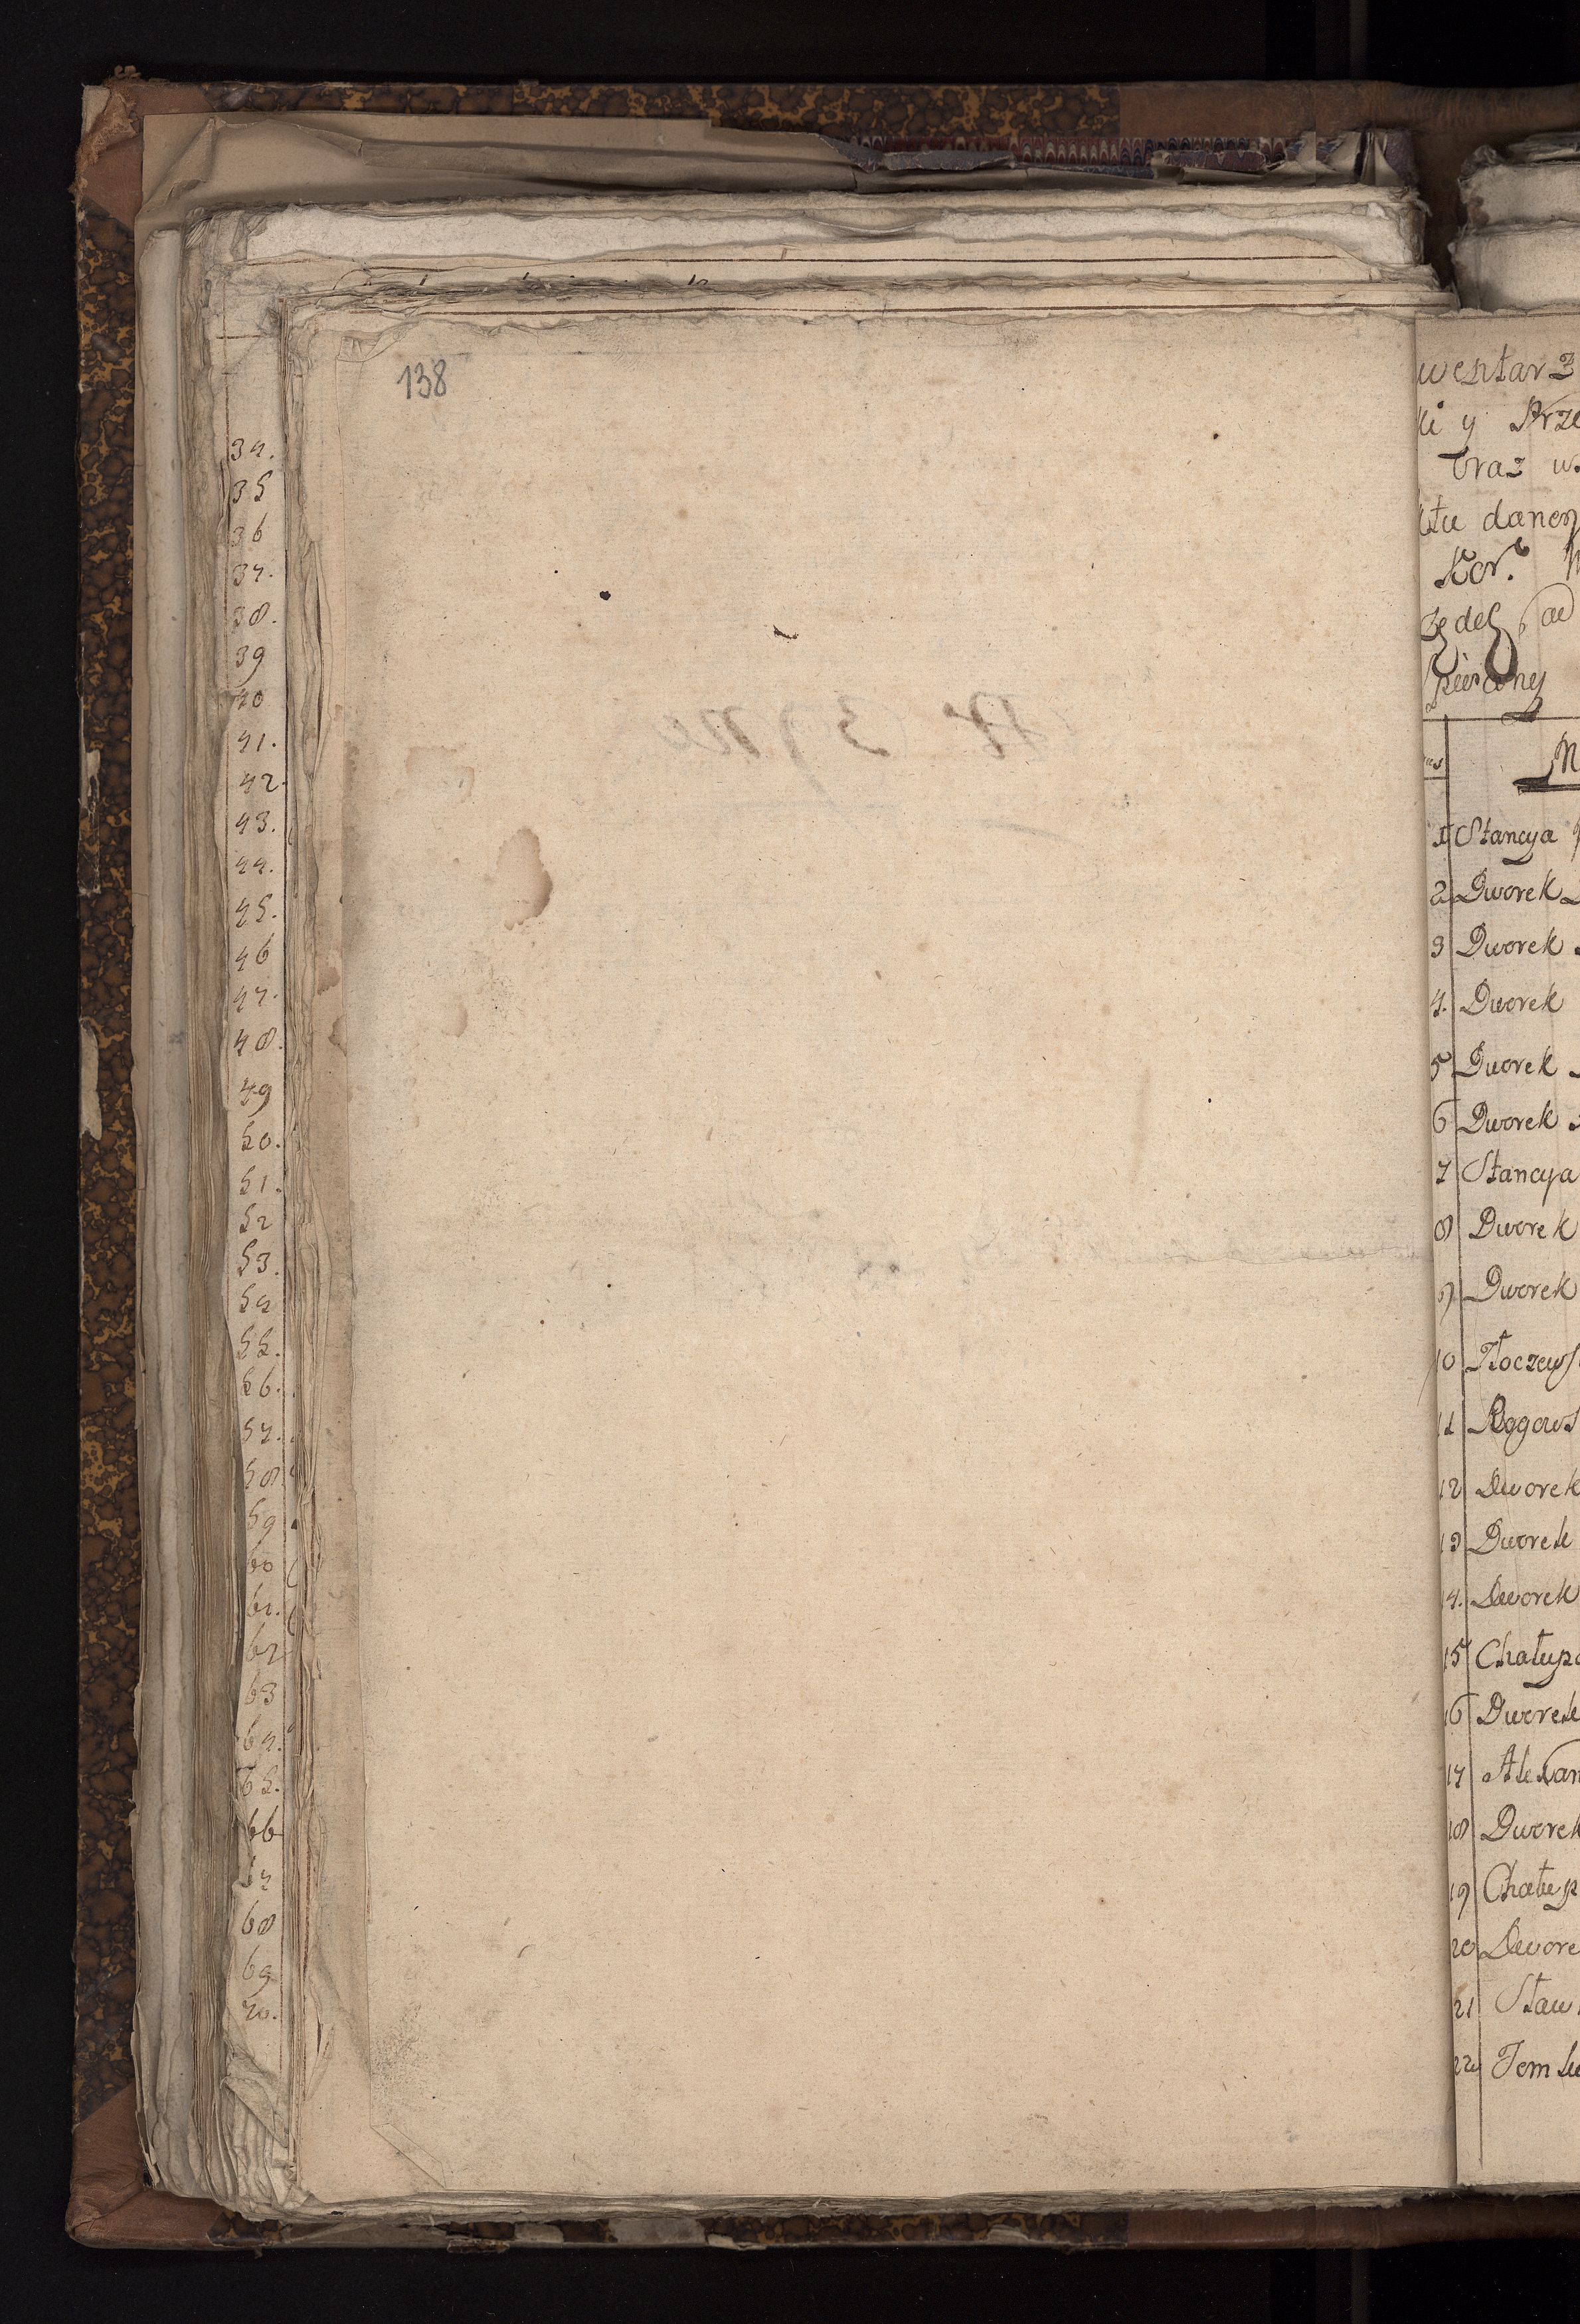 138
34.
35
36
37.
38.
39
40
41.
42.
43.
44.
45.
46
47.
48.
49
50.
51.
52
53.
54
55.
56.
57.
58
59
60
61.
62
63
64.
65.
66
67
68
69
70.
wentarz
ki y Prze
Oraz w
ktu daney
Kor.
N
1 Stancya
2 Dworek
3 Dworek
4. Dworek
5 Dworek
6 Dworek
7 Stancya
8 Dworek
9 Dworek
10 Tłoczews
11 Rogows
12 Dworek
13 Dworek
14. Dworek
15 Chałupa
16 Dworek
17 Alexan
18 Dworek
19 Chałup
20 Dwore
21 Staw
22